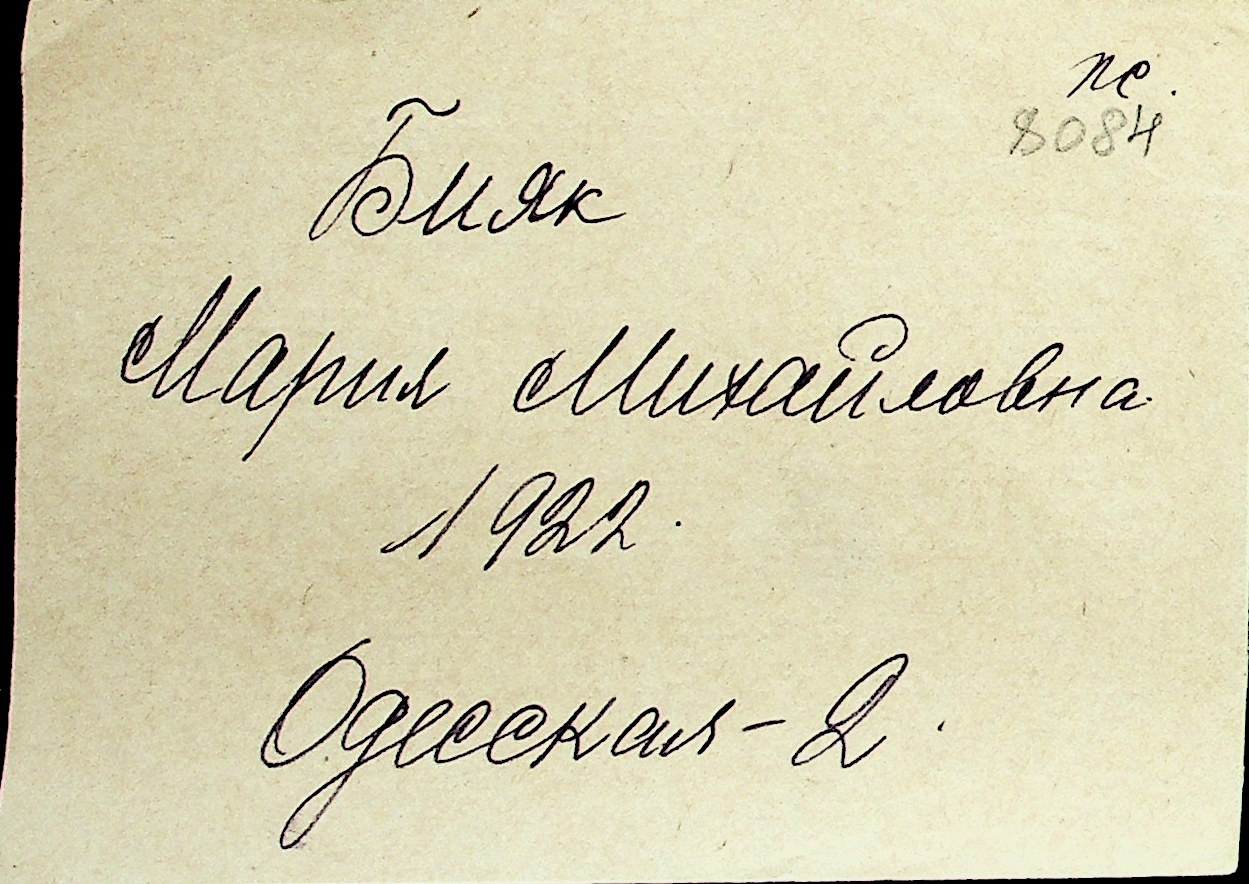 пс.
8084
Бияк
Мария Михайловна
1922.
Одесская-2.